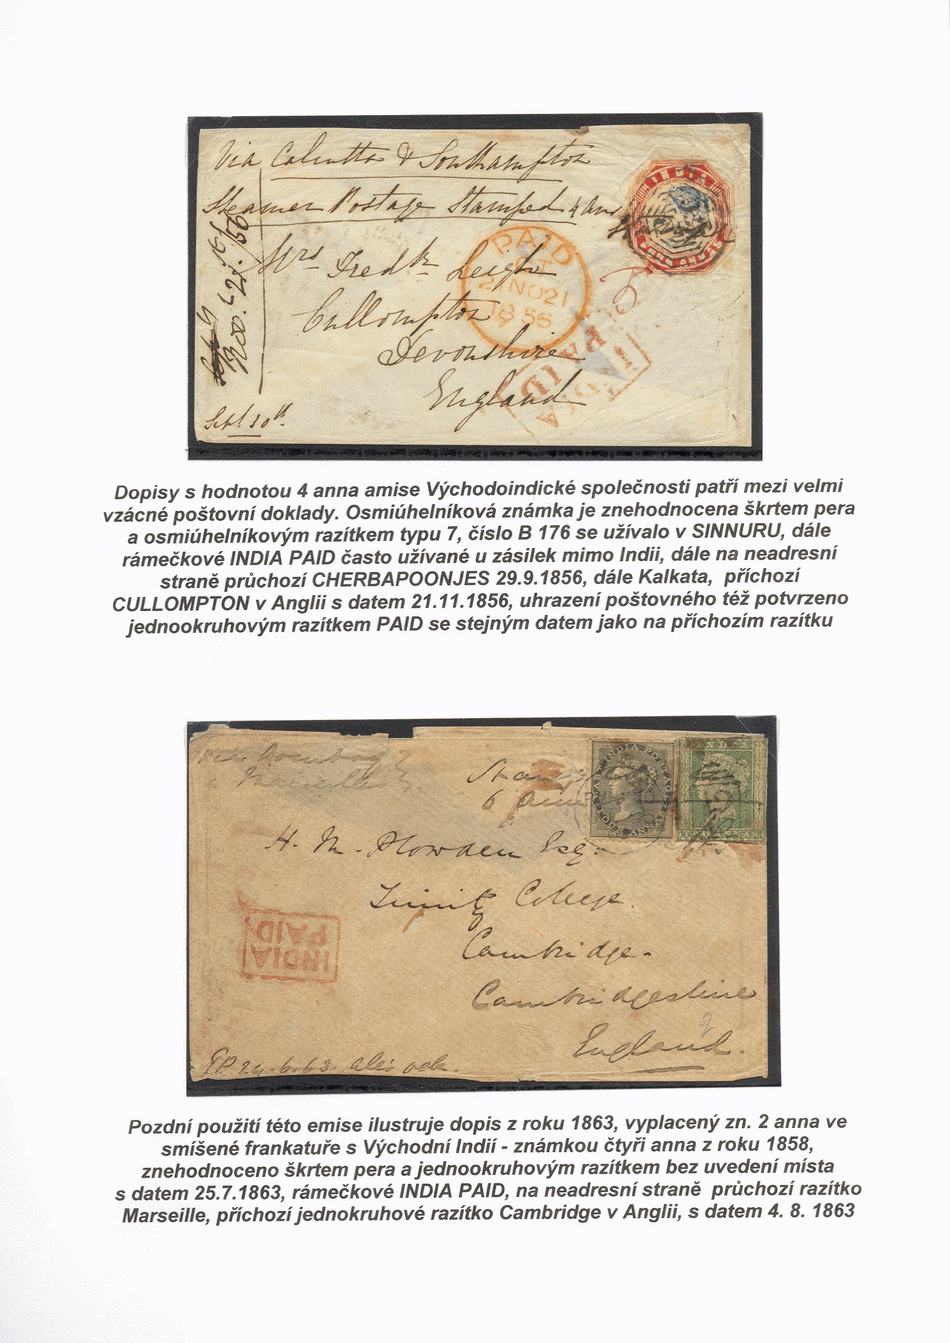 Via Calcutta & Southampton
Steamer Postage Stamped 4 Ans
INDIA
FOUR ANNAS
PAID
21 NO 21
1856
INDIA PAID
Mrs Fredk Leigh
Cullompton
Devonshire
England
Nov. 21. 56
Sept 10th
Dopisy s hodnotou 4 anna amise Východoindické společnosti patří mezi velmi
vzácné poštovní doklady. Osmiúhelníková známka je znehodnocena škrtem pera
a osmiúhelníkovým razítkem typu 7, číslo B 176 se užívalo v SINNURU, dále
rámečkové INDIA PAID často užívané u zásilek mimo Indii, dále na neadresní
straně průchozí CHERBAPOONJES 29.9.1856, dále Kalkata, příchozí
CULLOMPTON v Anglii s datem 21.11.1856, uhrazení poštovného též potvrzeno
jednookruhovým razítkem PAID se stejným datem jako na příchozím razítku
via Bombay &
Marseilles
6 Anna
INDIA POSTAGE
FOUR ANNAS
INDIA
H. M. Plowden Esq.
Trinity College.
Cambridge.
Cambridgeshire
England.
INDIA
PAID
24.6.63.
Pozdní použití této emise ilustruje dopis z roku 1863, vyplacený zn. 2 anna ve
smíšené frankatuře s Východní Indií - známkou čtyři anna z roku 1858,
znehodnoceno škrtem pera a jednookruhovým razítkem bez uvedení místa
s datem 25.7.1863, rámečkové INDIA PAID, na neadresní straně průchozí razítko
Marseille, příchozí jednokruhové razítko Cambridge v Anglii, s datem 4. 8. 1863